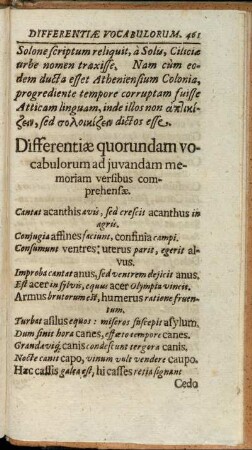 DIFFERENTIÆ VOCABULORUM. 461
Solone scriptum reliquit, à Solu, Ciliciæ
urbe nomen traxisse. Nam cùm eo-
dem ducta esset Atheniensium Colonia,
progrediente tempore corruptam fuisse
Atticam linguam, inde illos non
sed σολοικίζειν dictos esse.
Differentiæ quorundam vo-
cabulorum ad juvandam me-
moriam versibus com-
prehensæ.
Cantat acanthis avis, sed crescit acanthus in
agris.
Conjugia affines faciunt, confinia campi.
Consumunt ventres; uterus parit, egerit al-
vus.
Improba cantat anus, sed ventrem dejicit anus.
Est acer in sylvis, equus acer Olympia vincit.
Armus brutorum est, humerus ratione fruen-
tum.
Turbat asilus equos: miseros suscepit asylum.
Dum sinit hora canes, effœto tempore canes.
Grandaviq́; canis condescunt tergora canis.
Nocte canit capo, vinum vult vendere caupo.
Hæc cassis galea est, hi casses retia signant
Cedo